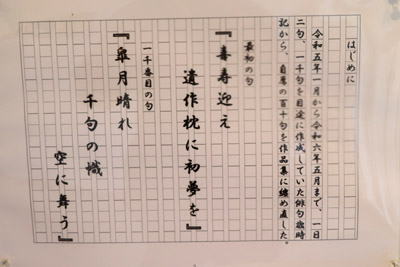 はじめに
令和五年一月から令和六年五月まで、一日
二句、一千句を目途に作成していた俳句歳時
記から、自薦の百十句を作品集に纏め直した。
最初の句
『喜寿迎え
遺作枕に初夢を』
一千番目の句
『皐月晴れ
千句の幟
空に舞う』